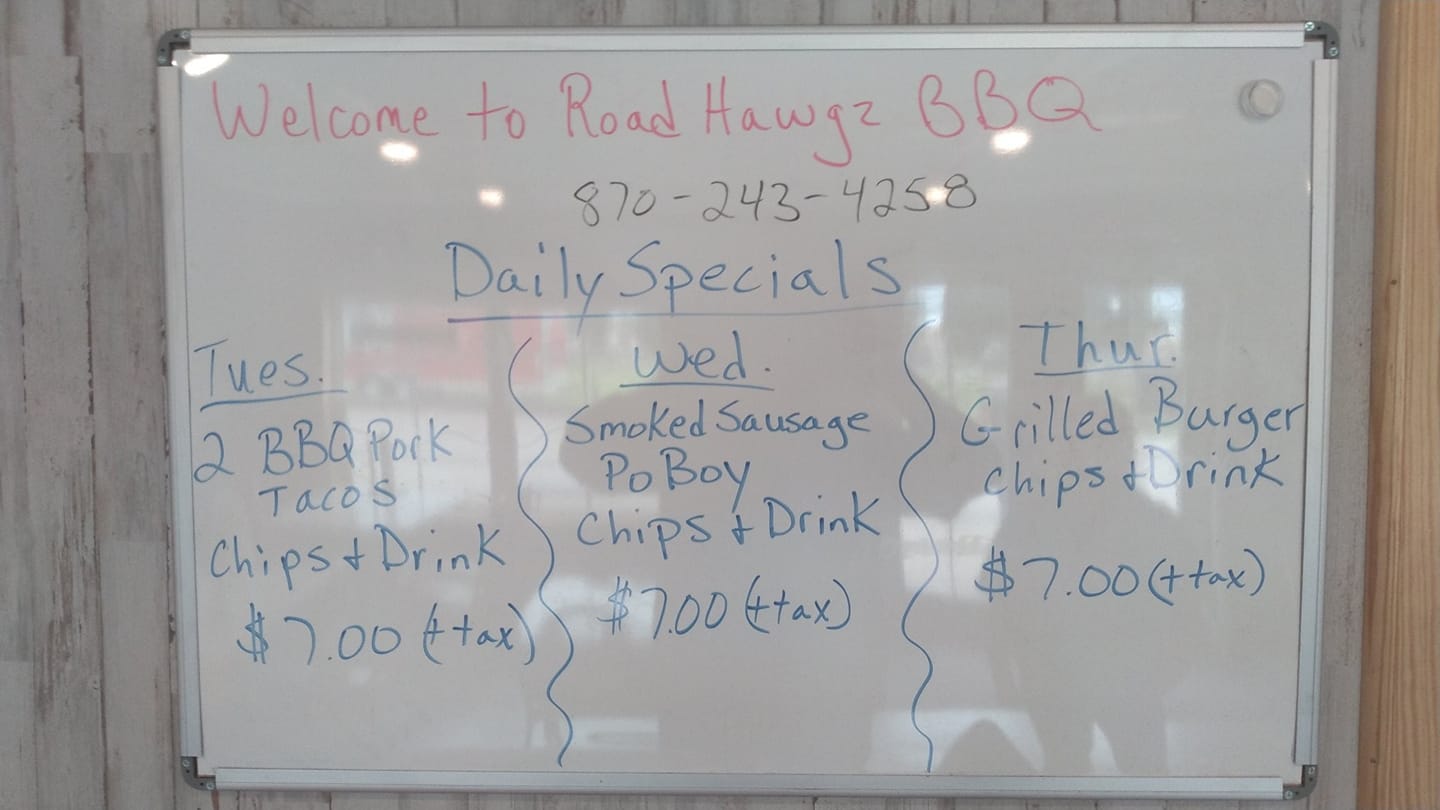 Welcome to Road Hawgz BBQ
870-243-4258
Daily Specials
Tues.
2 BBQ Pork
Tacos
Chips + Drink
$7.00 (+ tax)
Wed.
Smoked Sausage
Po Boy
Chips + Drink
$7.00 (+ tax)
Thur.
Grilled Burger
Chips + Drink
$7.00 (+ tax)